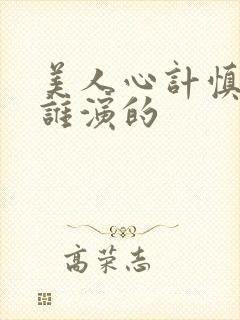 美人心計慎
誰演的
高荣志